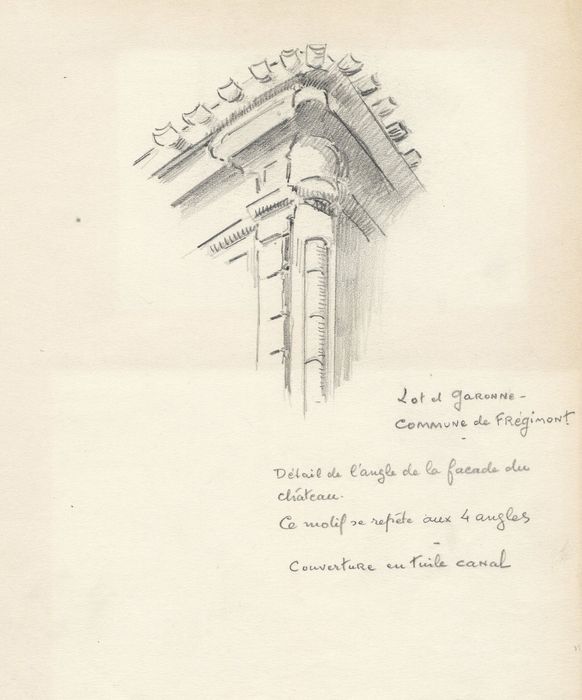 Lot et GARONNE -
COMMUNE de FRégimont
Détail de l'angle de la facade du
château.
Ce motif se repète aux 4 angles
Couverture en tuile canal